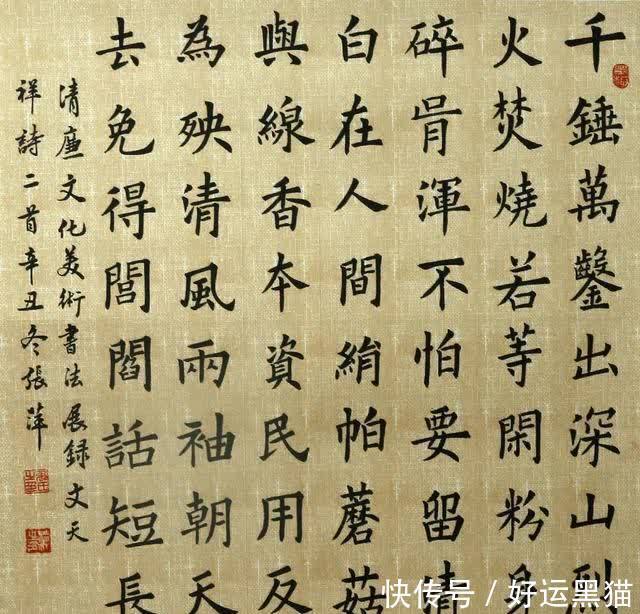 千錘萬鑿出深山
火焚燒若等閑粉
碎骨渾不怕要留
白在人間絹帕蘑菇
與線香本資民用反
為殃清風兩袖朝天
去免得閭閻話短長
清廉文化美術書法展録文天
祥詩二首辛丑冬張萍
快传号/好运黑猫